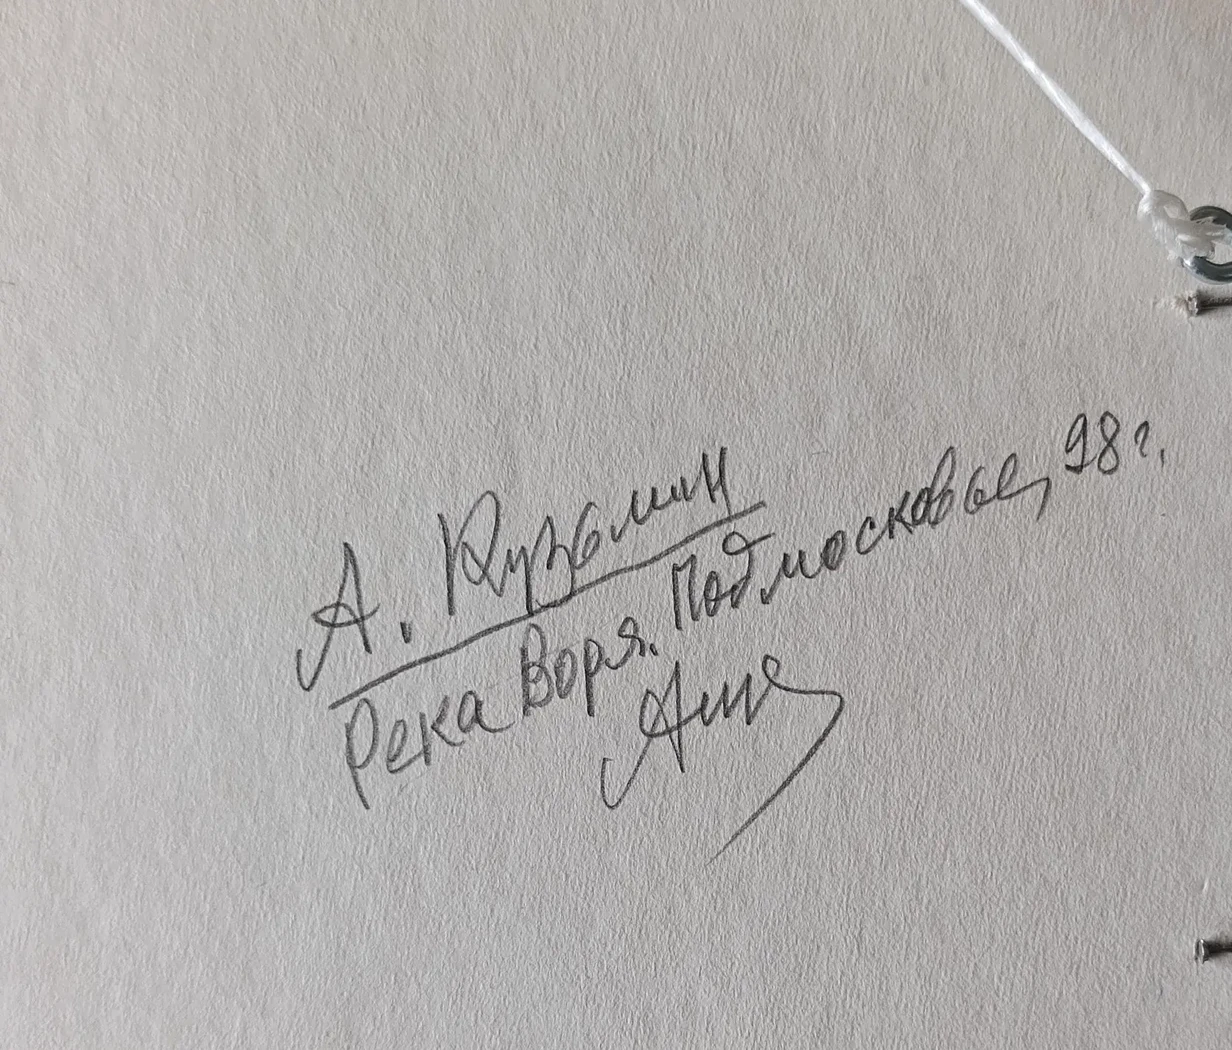 А. Кузьмин
Река Воря. Подмосковье, 98 г.